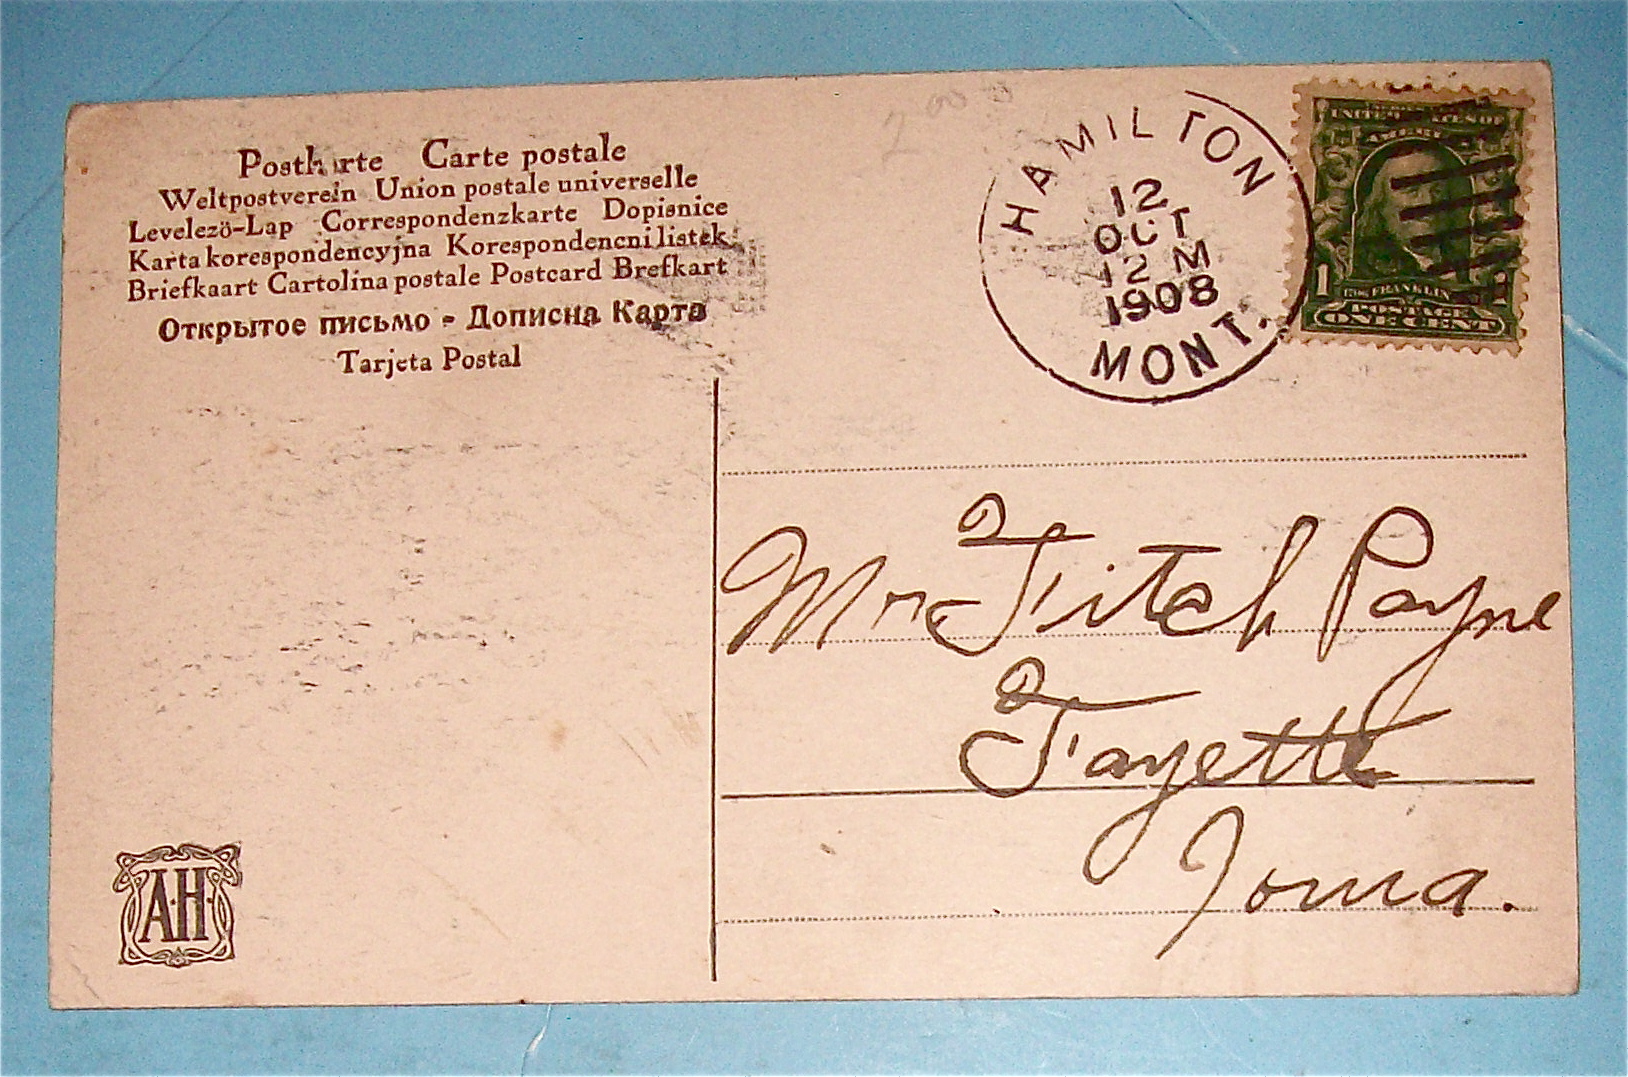 Postkarte Carte postale
Weltpostverein Union postale universelle
Levelező-Lap Correspondenzkarte Dopisnice
Karta korespondencyjna Korespondencni listek
Briefkaart Cartolina postale Postcard Brefkart
Открытое письмо - Дописна Карта
Tarjeta Postal
HAMILTON
12
OCT
12 M
1908
MONT.
UNITED STATES OF
AMERICA
1 1
FRANKLIN
POSTAGE
ONE CENT
Mr Fitch Payne
Fayette
Iowa.
A.H.